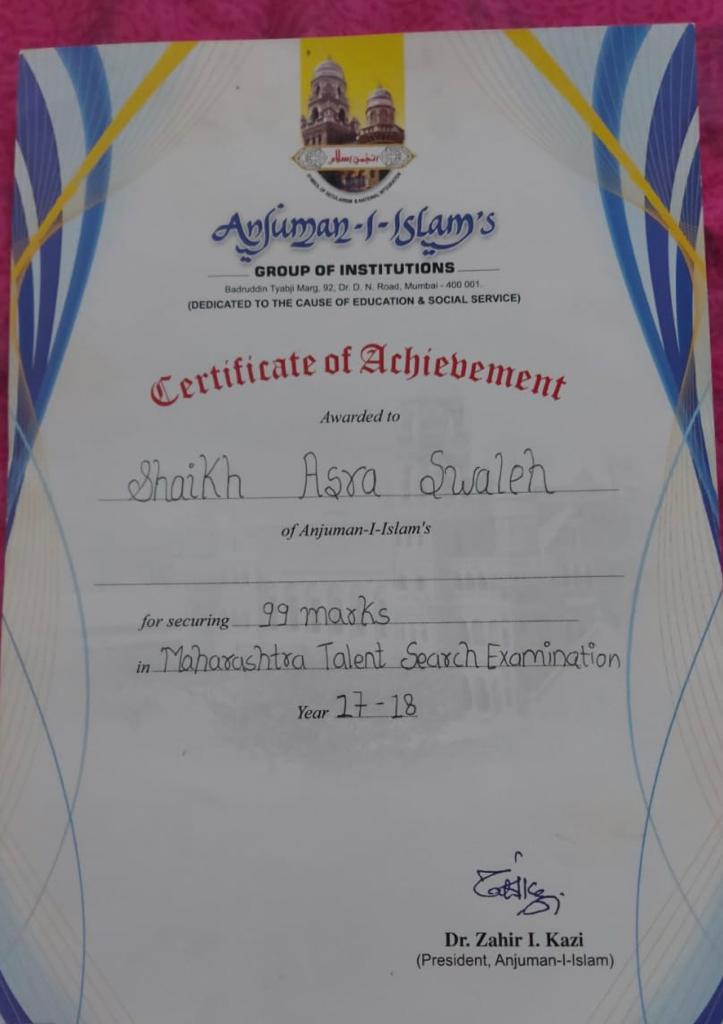 انجمن اسلام
SYMBOL OF SECULARISM & NATIONAL INTEGRATION
Anjuman-I-Islam's
GROUP OF INSTITUTIONS
Badruddin Tyabji Marg, 92, Dr. D. N. Road, Mumbai - 400 001.
(DEDICATED TO THE CAUSE OF EDUCATION & SOCIAL SERVICE)
Certificate of Achievement
Awarded to
Shaikh Asra Swaleh
of Anjuman-I-Islam's
for securing 99 marks
in Maharashtra Talent Search Examination
Year 17-18
Dr. Zahir I. Kazi
(President, Anjuman-I-Islam)